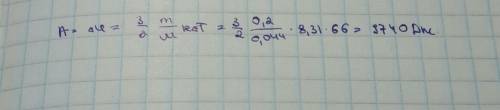 A = ΔU = 3/2 m/M RΔT = 3/2 0,2/0,044 · 8,31 · 66 = 3740 Дж